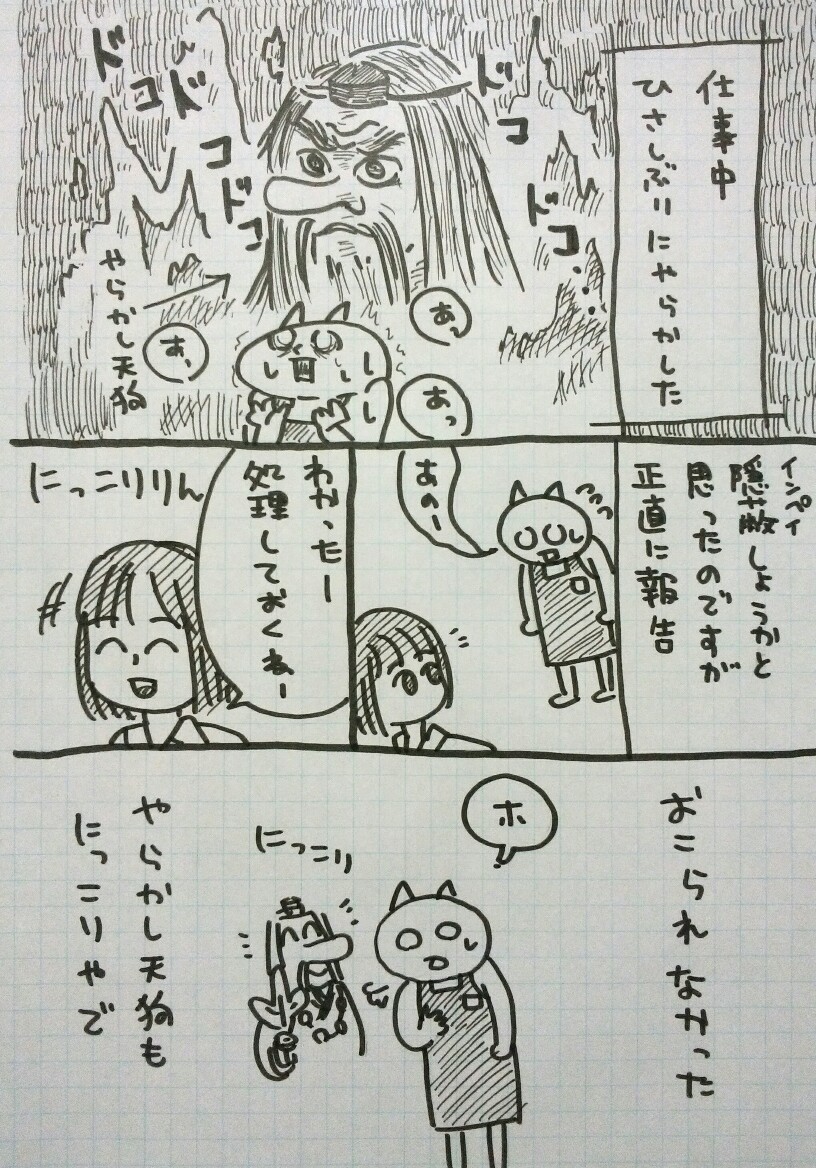 仕事中
ひさしぶりにやらかした
ドコ
ドコ…
ドコドコドコ
あっ
あっ
あっ
やらかし天狗
インペイ
隠蔽しようかと
思ったのですが
正直に報告
あのー
わかったー
処理しておくねー
にっこりりん
おこられなかった
ホ
にっこり
やらかし天狗も
にっこりやで